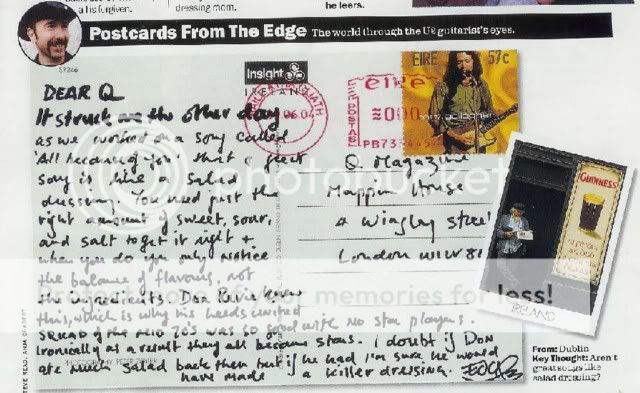 a his forgiven.
dressing mom.
he leers.
Postcards From The Edge The world through the U2 guitarist's eyes.
Insight
IRELAND
06 04
éire
000
PB73
ÉIRE 57c
gallagher
DEAR Q
It struck me the other day
as we worked on a song called
'All because of You' that a great
song is like a salad
dressing. You need just the
right amount of sweet, sour,
and salt to get it right +
when you do you only notice
the balance of flavours, not
the ingredients. Don Revie knew
this, which is why his Leeds United
SQUAD of the mid 70's was so good with no star players.
Ironically as a result they all became stars. I doubt if Don
ate much salad back then but if he had I'm sure he would
have made a killer dressing. EDGE
Q Magazine
Mappin House
4 Winsley Street
London W1W 8
GUINNESS
IRELAND
photobucket
Protect more of your memories for less!
From: Dublin
Key Thought: Aren't
great songs like
salad dressing?